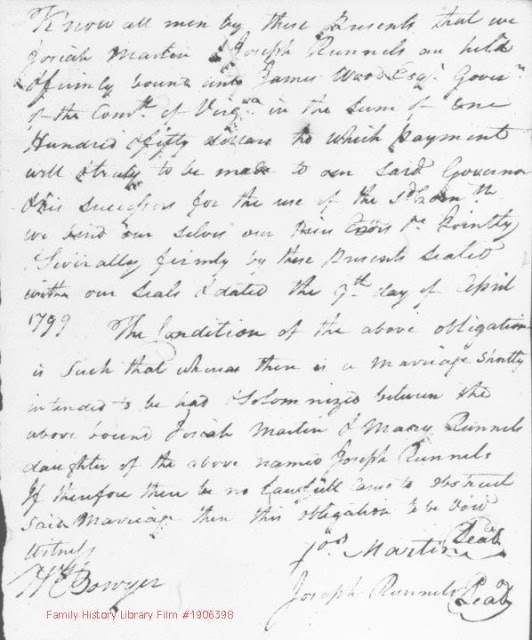 Know all men by these Presents that we
Josiah Martin & Joseph Runnels are held
& firmly bound unto James Wood Esqr. Govern
of the Comth. of Virga in the sum of one
Hundred & fifty dollars to which payment
will & truly to be made to our said Governor
& his successors for the use of the sd. Comth
we bind our selves our heirs Exors &c Jointly
Severally firmly by these Presents Sealed
with our Seals & dated the 9th day of April
1799 The Condition of the above obligation
is Such that whereas there is a Marriage Shortly
intended to be had & Solomnized between the
above bound Josiah Martin & Mary Runnels
daughter of the above named Joseph Runnels
If therefore there be no Lawfull Cause to obstruct
Said Marriage then this obligation to be Void
Witness
Jos Martin Seal
H Bowyer
Joseph Runnels Seal
Family History Library Film #1906398